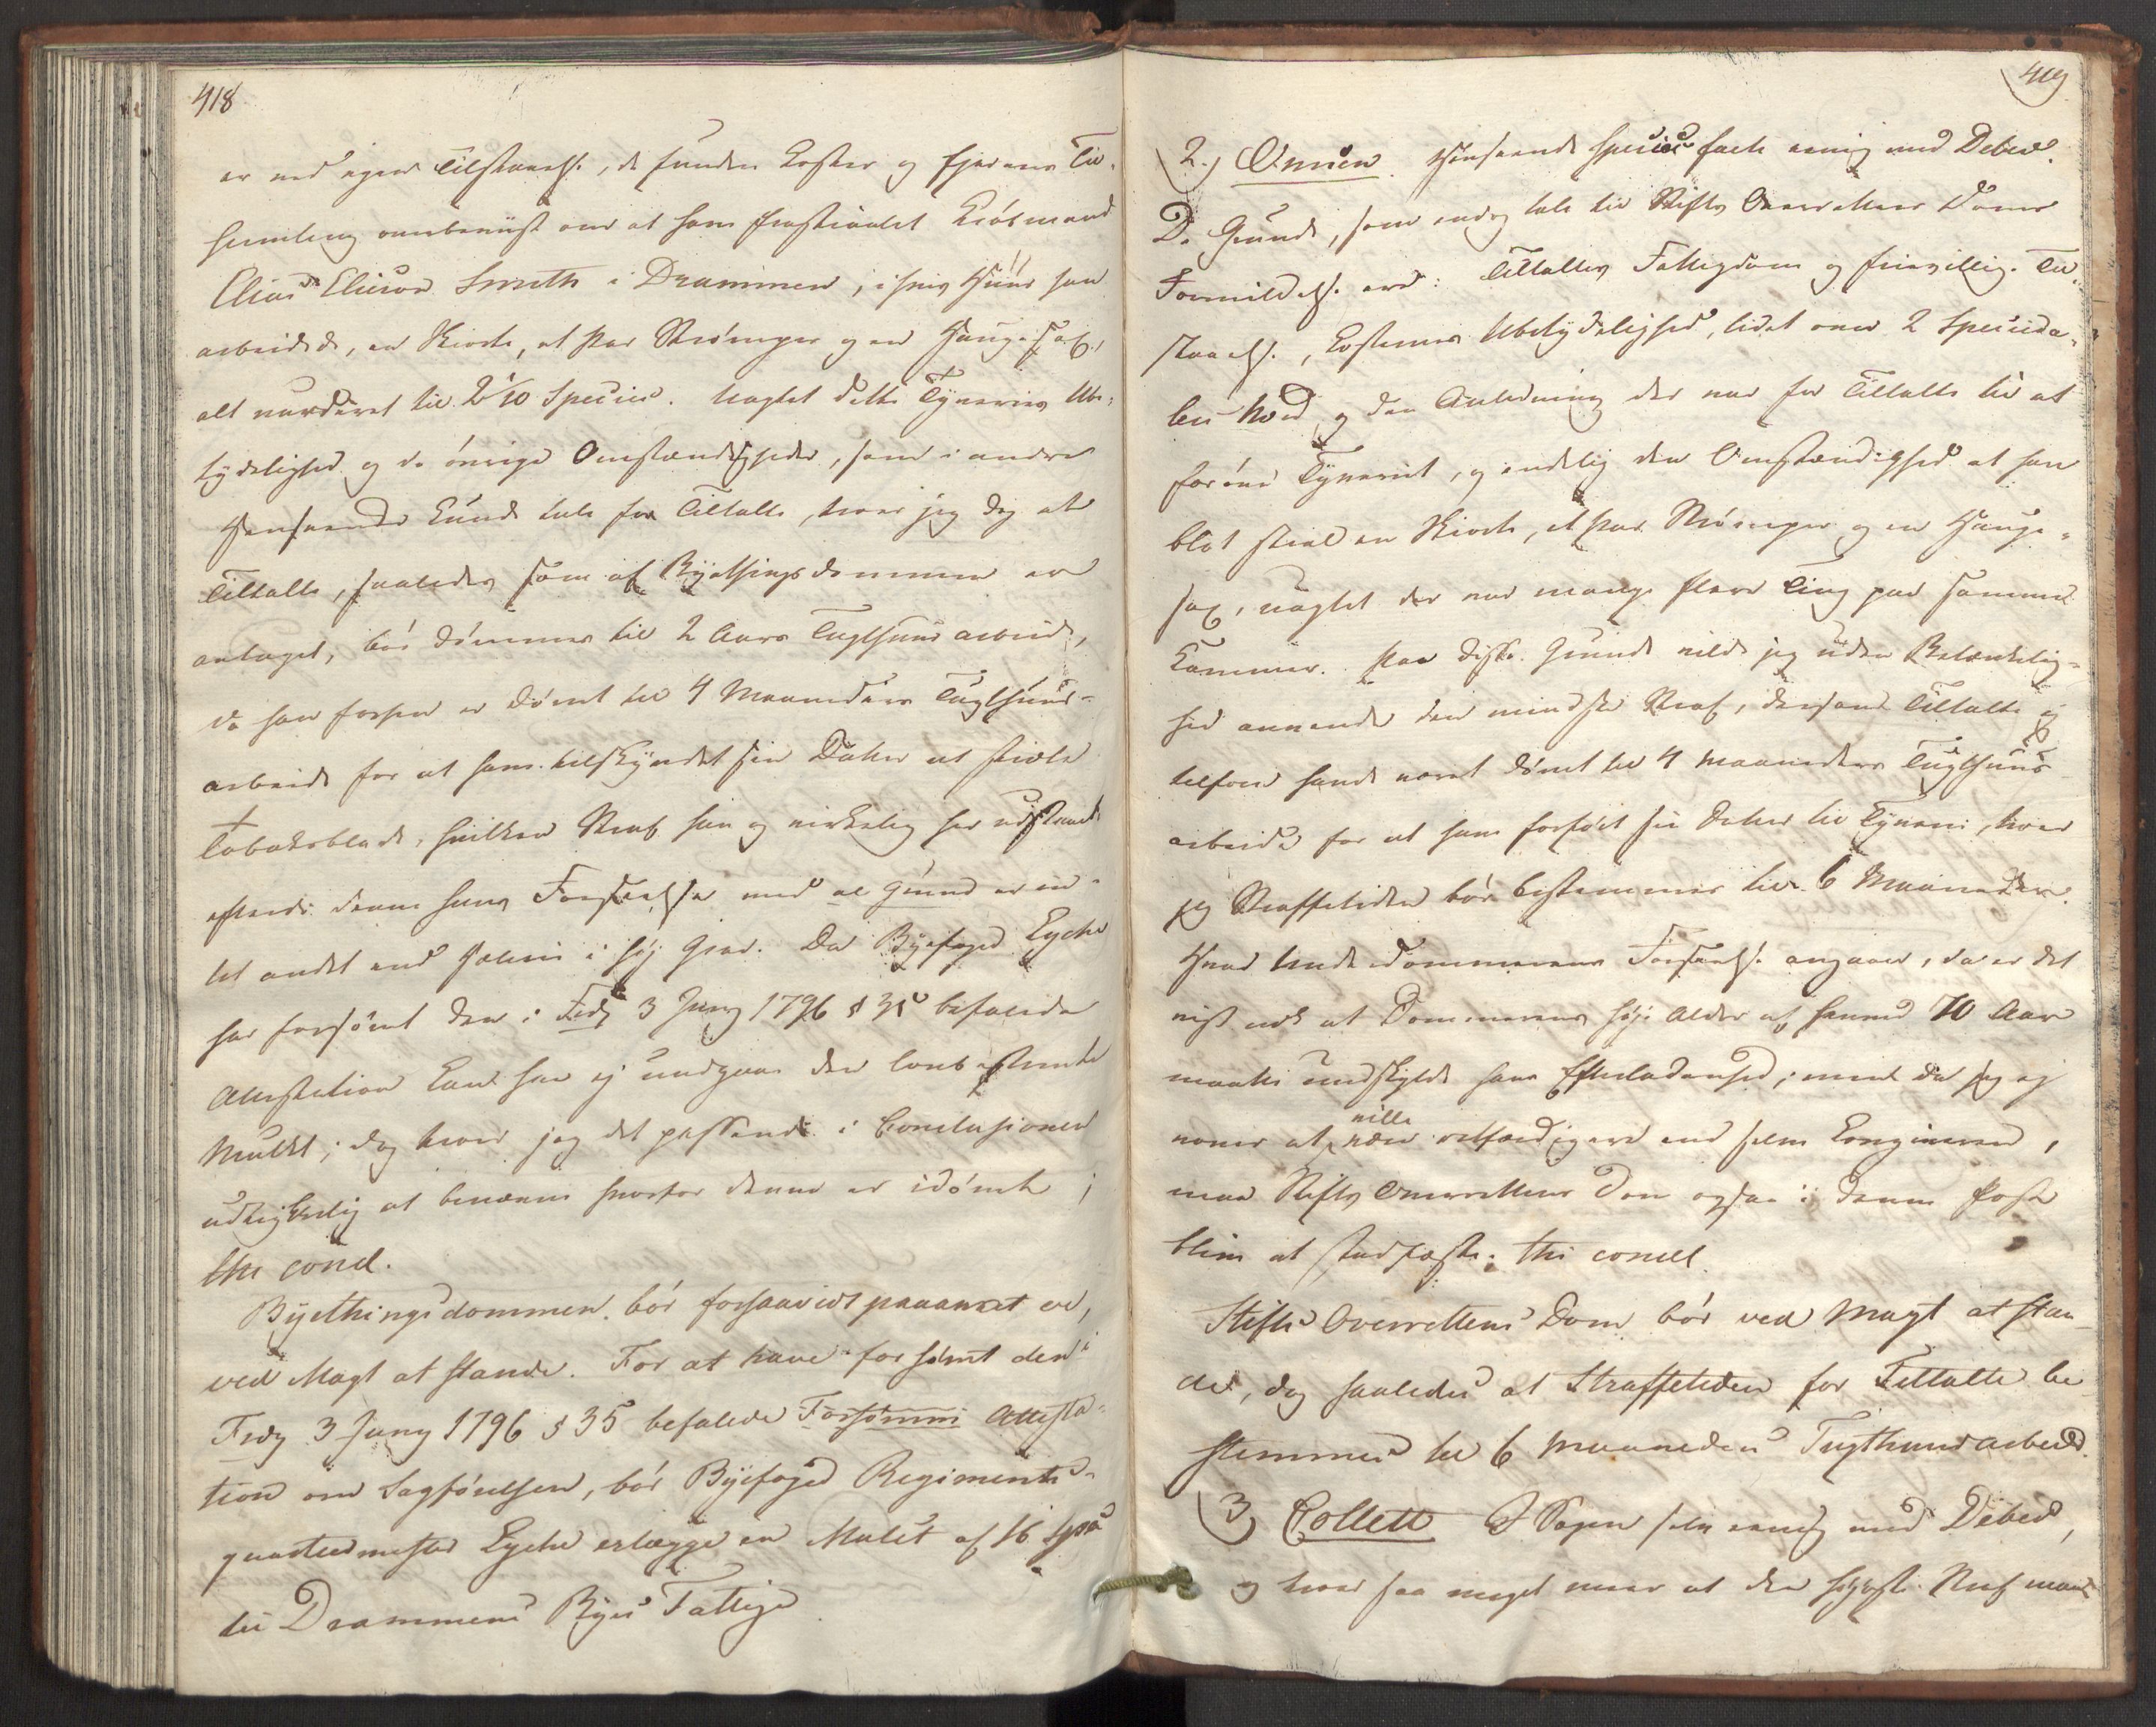 418
er ved egen Tilstaaelse, de fundne Koster og fleres Til-
samling overbeviist om at have frastiaalet Kiøbmand
Elias Eliesøn Smith i Drammen, i hvis Huus han
arbeidede, en Skiorte, et Par Strømper og en Haugesax,
alt vurderet til 2 1/10 Species. Uagtet dette Tyveries Ube-
tydelighed og de øvrige Omstændigheder, som i andre
Henseende kunde tale for Tiltalte, troer jeg dog at
Tiltalte, saaledes som af Byethingsdommen er
antaget, bør dømmes til 2 Aars Tugthuusarbeide,
da han forhen er dømt til 4 Maaneders Tugthuus-
arbeide for at have tilskyndet sin Datter at stiæle
Tobaksblade, hvilken Straf han og virkelig har udstaaet
efterdi denne hans Forseelse med al Grund er in-
tet andet end Hæleri i høj Grad. Da Byefoged Lyche
har forsømt den i Frdg 3 Juny 1796 § 35 befalede
Attestation kan han ej undgaae den lovbestemte
Mulkt; dog troer jeg det passende i Conclusionen
udtrykkelig at benævne hvorfor denne er idømt;
thi concl.
Byethingsdommen bør forsaavidt paaanket er,
ved Magt at stande. For at have forsømt den i
Frdg 3 Juny 1796 § 35 befalede Forsømni Attesta-
tion om Sagførelsen, bør Byefoged Regiments-
quarteermester Lyche erlægge en Mulct af 16 Spd
til Drammens Byes Fattige.
419
2.) Omsen Henseende species facti eenig med Deber.
De Grunde, som endog tale til Stifts Overrettens Doms
Formildelse ere: Tiltaltes Fattigdom og frievillige Til-
staaelse, Kosternes Ubetydelighed, lidet over 2 Specieda-
lers Værd og den Anledning der var for Tiltalte til at
forøve Tyveriet, og endelig den Omstændighed at han
blot stial en Skiorte, et Par Strømper og en Hauge-
sax, uagtet der var mange flere Ting paa samme
Kammer. Paa disse Grunde vilde jeg uden Betænkelig-
hed anvende den mindste Straf, dersom Tiltalte ej
tilforn havde været dømt til 4 Maaneders Tugthuus
arbeide for at have forført sin Datter til Tyveri, troer
jeg Straffetiden bør bestemmes til 6 Maaneder.
Hvad Underdommerens Forseelse angaaer, da er det
vist nok at Dommerens høje Alder af henved 70 Aar
maatte undskylde hans Efterladenhed; men da jeg ej
vover at ville være retfærdigere end selve Lovgiveren,
maa Stifts Overrettens Dom ogsaa i denne Post
blive at stadfæste; thi concl.
Stifts Overrettens Dom bør ved Magt at stan-
de, dog saaledes at Straffetiden for Tiltalte be
stemmes til 6 Maaneders Tugthuusarbeide.
3) Collett I Sagen selv eenig med Deber,
og troer saa meget meer at den høyeste Straf maae